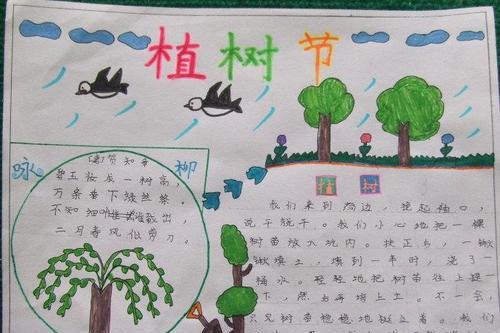 植树节
咏 柳
贺知章
碧玉妆成一树高,
万条垂下绿丝绦,
不知细叶谁裁出,
二月春风似剪刀。
植 树
我们来到 边,挽起袖口,
说干就干。我们小心地把一棵
树苗放入坑内。扶正后,一锹
锹填土,填到一半时,浇了一
桶水。轻轻地把树苗往上提一
下,然后再培上土。不一会,
只见树苗稳稳地挺立着。我们